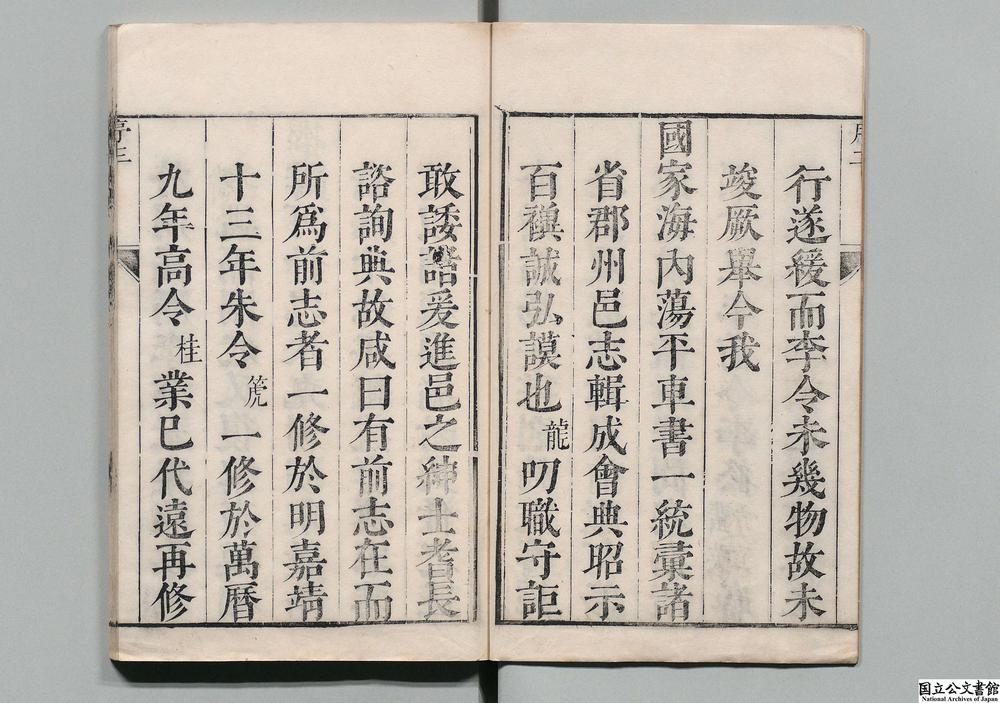 行遂緩而李令未幾物故未
竣厥舉今我
國家海內蕩平車書一統彙諸
省郡州邑志輯成會典昭示
百禩誠弘謨也龍叨職守詎
敢諉謹爰進邑之紳士耆長
諮詢典故咸曰有前志在而
所爲前志者一修於明嘉靖
十三年朱令箎一修於萬曆
九年高令桂業已代遠再修
国立公文書館
National Archives of Japan